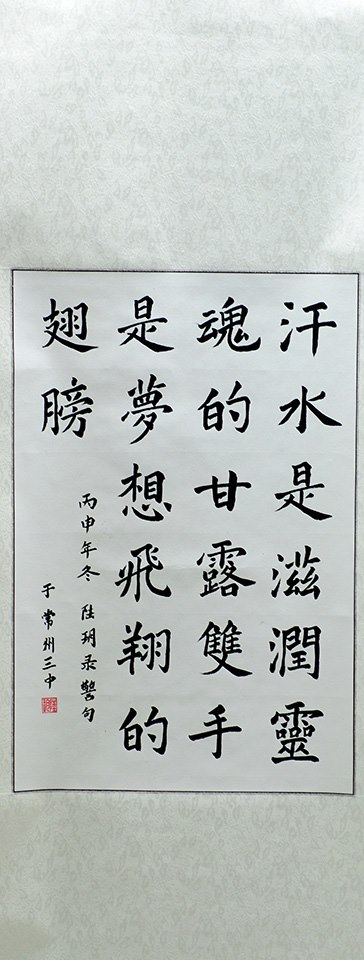 汗水是滋潤靈
魂的甘露雙手
是夢想飛翔的
翅膀
丙申年冬 陆玥录警句
于常州三中